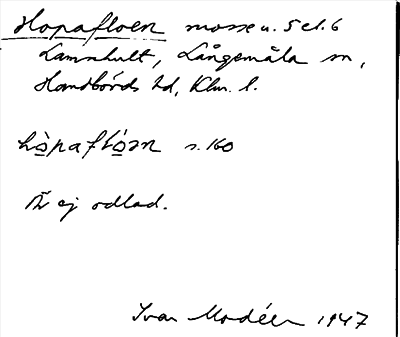 Hopafloen mosse u. 5 el. 6
Lamnhult, Långsmåla sn,
Handbörds hd, Klm. l.
hòpaflóən s. 160
Är ej odlad.
Ivar Modéer 1947